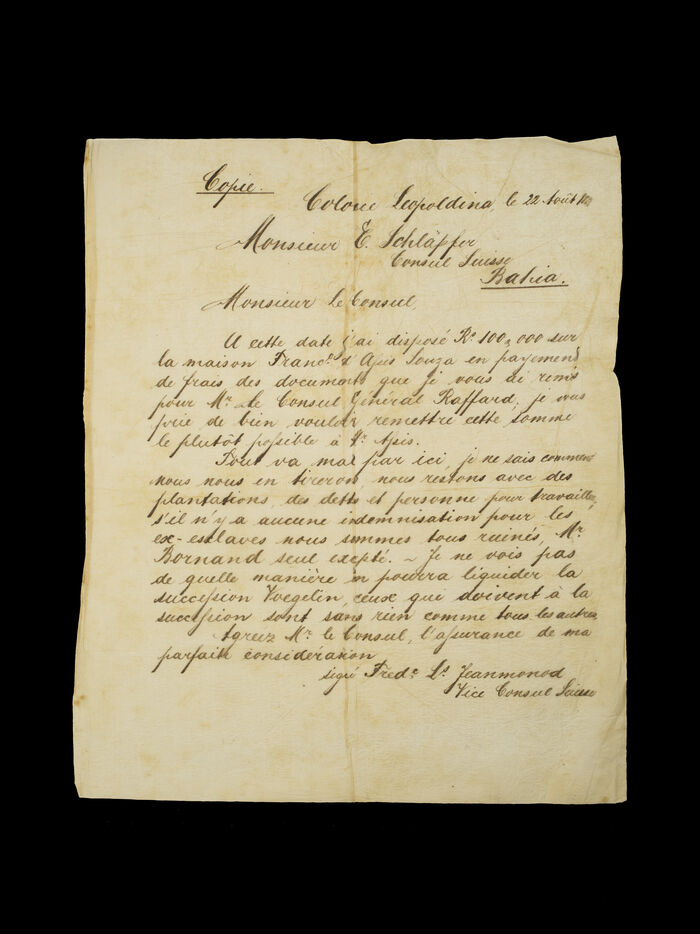 Copie.
Colonie Leopoldina, le 22 Août
Monsieur E. Schläpfer
Consul Suisse
Bahia.
Monsieur le Consul,
A cette date j'ai disposé Rs 100,000 sur
la maison Franc. d'Assis Souza en payement
de frais des documents que je vous ai remis
pour Mr. le Consul Général Raffard, je vous
prie de bien vouloir remettre cette somme
le plutôt possible à Assis.
Tout va mal par ici, je ne sais comment
nous nous en tireron, nous restons avec des
plantations, des detts et personne pour travailler,
s'il n'y a aucune indemnisation pour les
ex-esclaves nous sommes tous ruinés, Mr.
Bornand seul exepté. - Je ne vois pas
de quelle manière on pourra liquider la
succession Voegelin, ceux qui doivent à la
succession sont sans rien comme tous les autres.
Agreez Mr. le Consul, l'assurance de ma
parfaite considération
signé Fred. Ls. Jeanmonod
Vice Consul Suisse